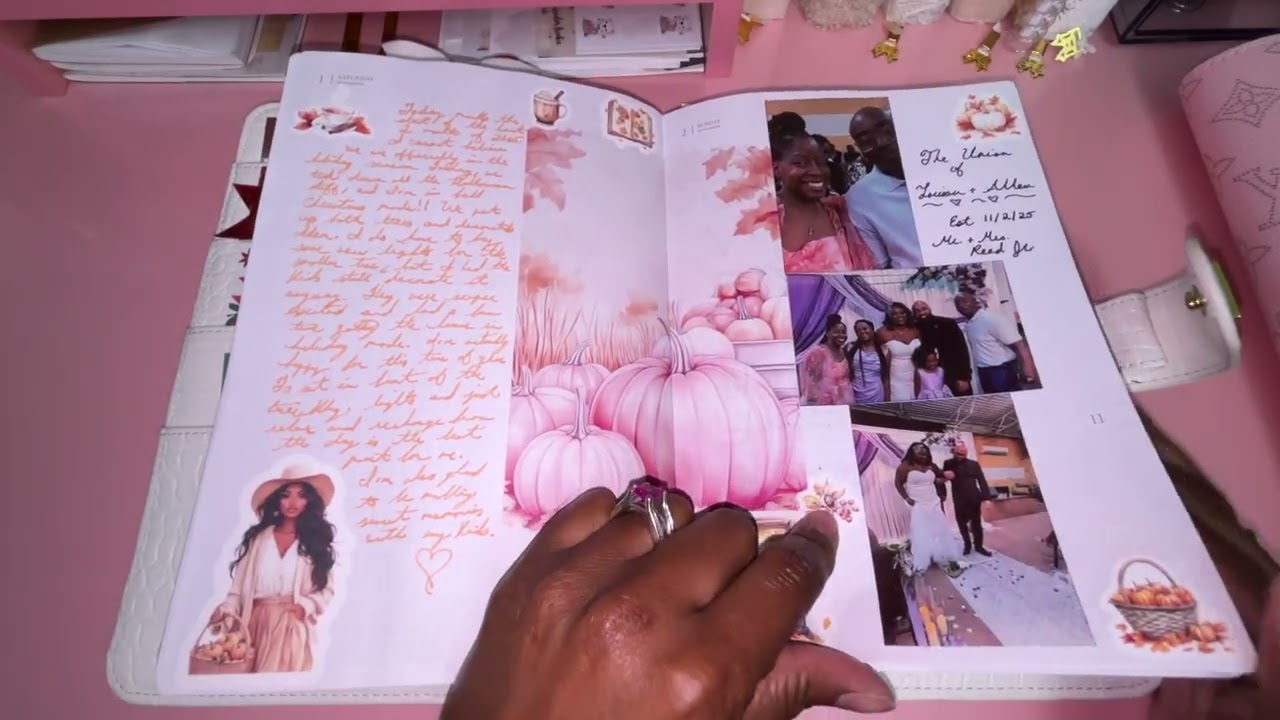 1 | SATURDAY
Today marks the
we are officially in the
holiday season. Today we
took down all the Halloween
stuff, and I'm in full
Christmas mode!! We put
up both trees and decorated
them. I do have to buy
some new lights for the
smaller tree, but I let the
kids still decorate it
anyway. They were super
excited and had a
time getting the house in
holiday mode. I'm actually
happy for this time of year
To sit in front of the
tree, lights and just
relax and recharge from
the day is the best
part for me.
I'm also glad
to be making
sweet memories
with my kids.
2 | SUNDAY
The Union
of
+ Allen
Est 11/2/25
Mr. + Mrs.
Reed Jr
11